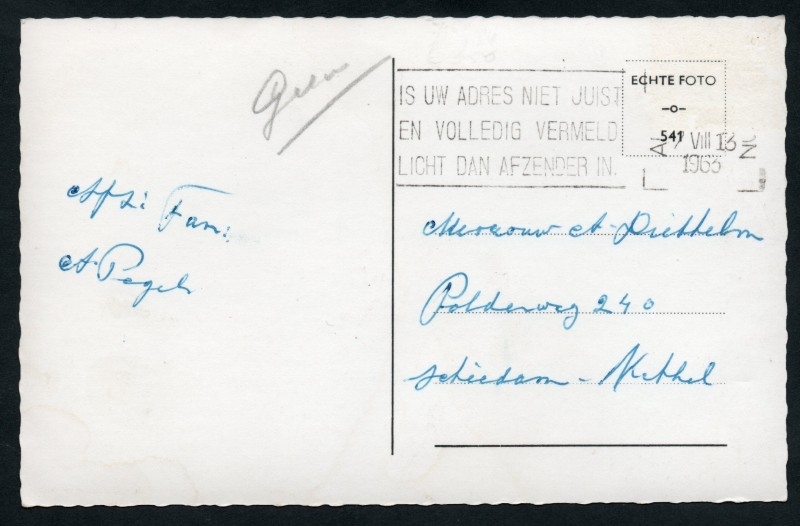 IS UW ADRES NIET JUIST
EN VOLLEDIG VERMELD
LICHT DAN AFZENDER IN.
ECHTE FOTO
-o-
541
VIII 13
1963
Afz: Fam:
A. Pegels
Mevrouw A. Diethelm
Polderweg 240
Schiedam - Kethel